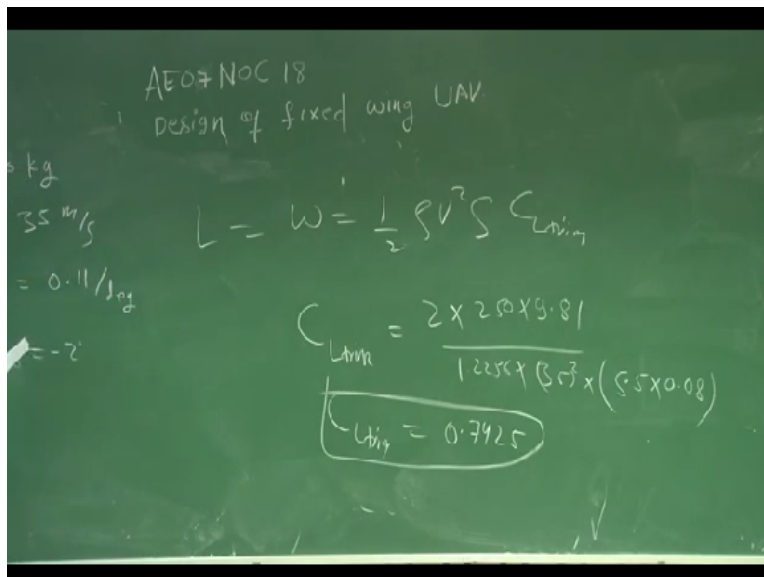 AE07NOC18
Design of fixed wing UAV
kg
35 m/s
= 0.11/deg
= -2
L = W = 1/2 ρV²S C_Ltrim
C_Ltrim = 2×250×9.81 / 1.2256×(35)²×(5.5×0.08)
C_Ltrim = 0.7425